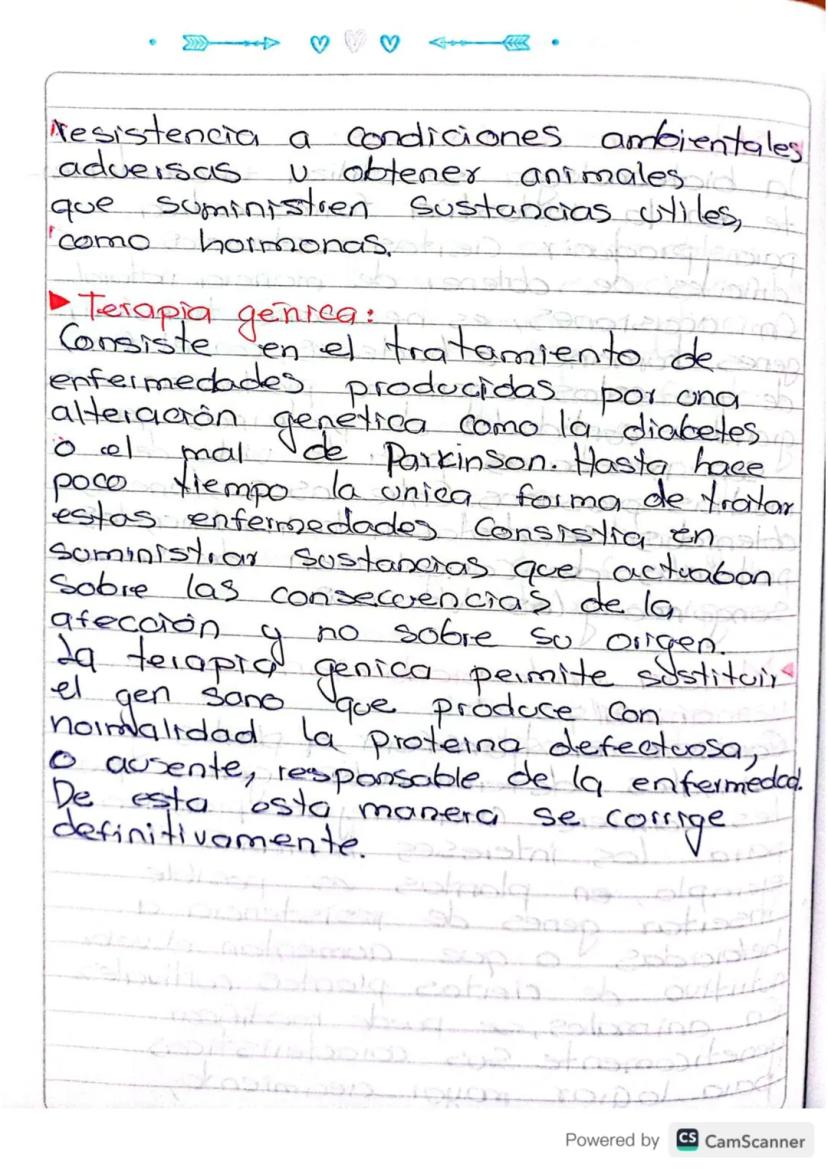 resistencia a condiciones ambientales
adversas u obtener animales
que suministren sustancias utiles,
como hormonas.
▶ Terapia génica:
Consiste en el tratamiento de
enfermedades producidas por una
alteración genética como la diabetes
o el mal de Parkinson. Hasta hace
poco tiempo la unica forma de tratar
estas enfermedades consistia en
suministrar sustancias que actuaban
sobre las consecuencias de la
afección y no sobre su origen.
La terapia genica permite sustituir
el gen sano que produce con
normalidad la proteina defectuosa,
o ausente, responsable de la enfermedad.
De esta esta manera se corrige
definitivamente.
Powered by CS CamScanner